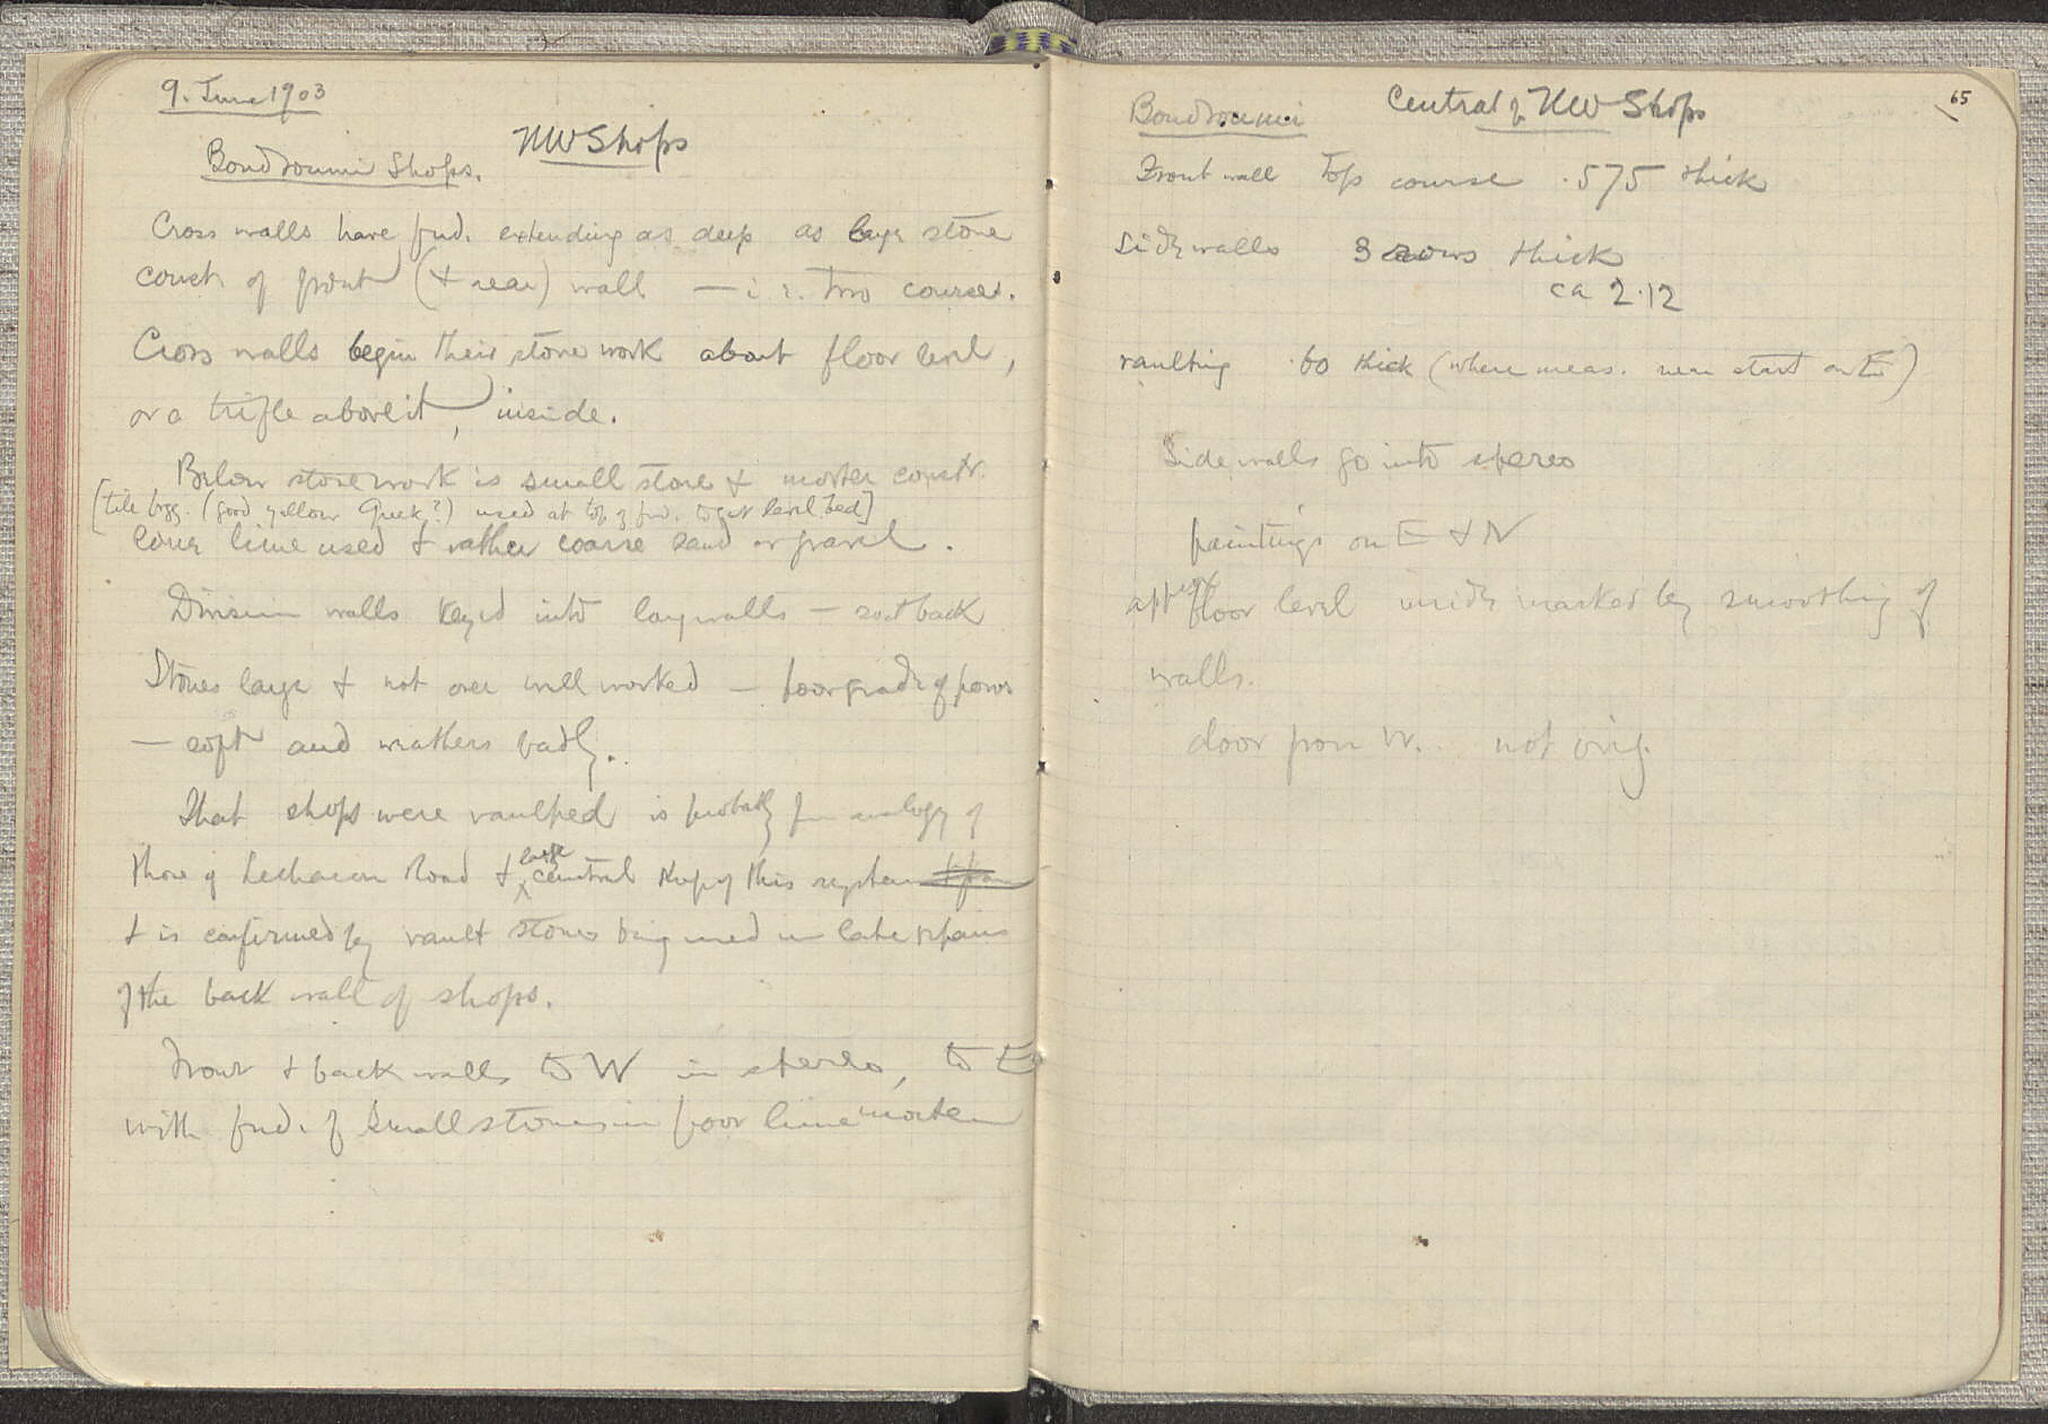 9. June 1903
NW Shops
Boudroumi Shops.
Cross walls have fnd. extending as deep as large stone
constr of front (& rear) wall — i.e. two courses.
Cross walls begin their stone work about floor level,
or a trifle above it, inside.
Below stonework is small stone & mortar constr.
[tile frgg. (good yellow Greek?) used at top of fnd. to get level bed]
lime used & rather coarse sand or gravel.
Division walls keyed into long walls — not back
Stones large & not over well worked — poor grade of poros
— soft and weathers badly.
That shops were vaulted is probably fr analogy of
those of Lechaeum Road & large central shop of this system
& is confirmed by vault stones being used in late repairs
of the back wall of shops.
Front & back walls to W in stereo, to E
with fnd. of small stones in poor lime mortar
65
Boudroumi Central of NW Shops
Front wall top course .575 thick
Side walls 3 rows thick
ca 2.12
vaulting .60 thick (where meas. near start on E)
Side walls go into stereo
paintings on E & N
floor level inside marked by smoothing of
walls.
door from W. not orig.